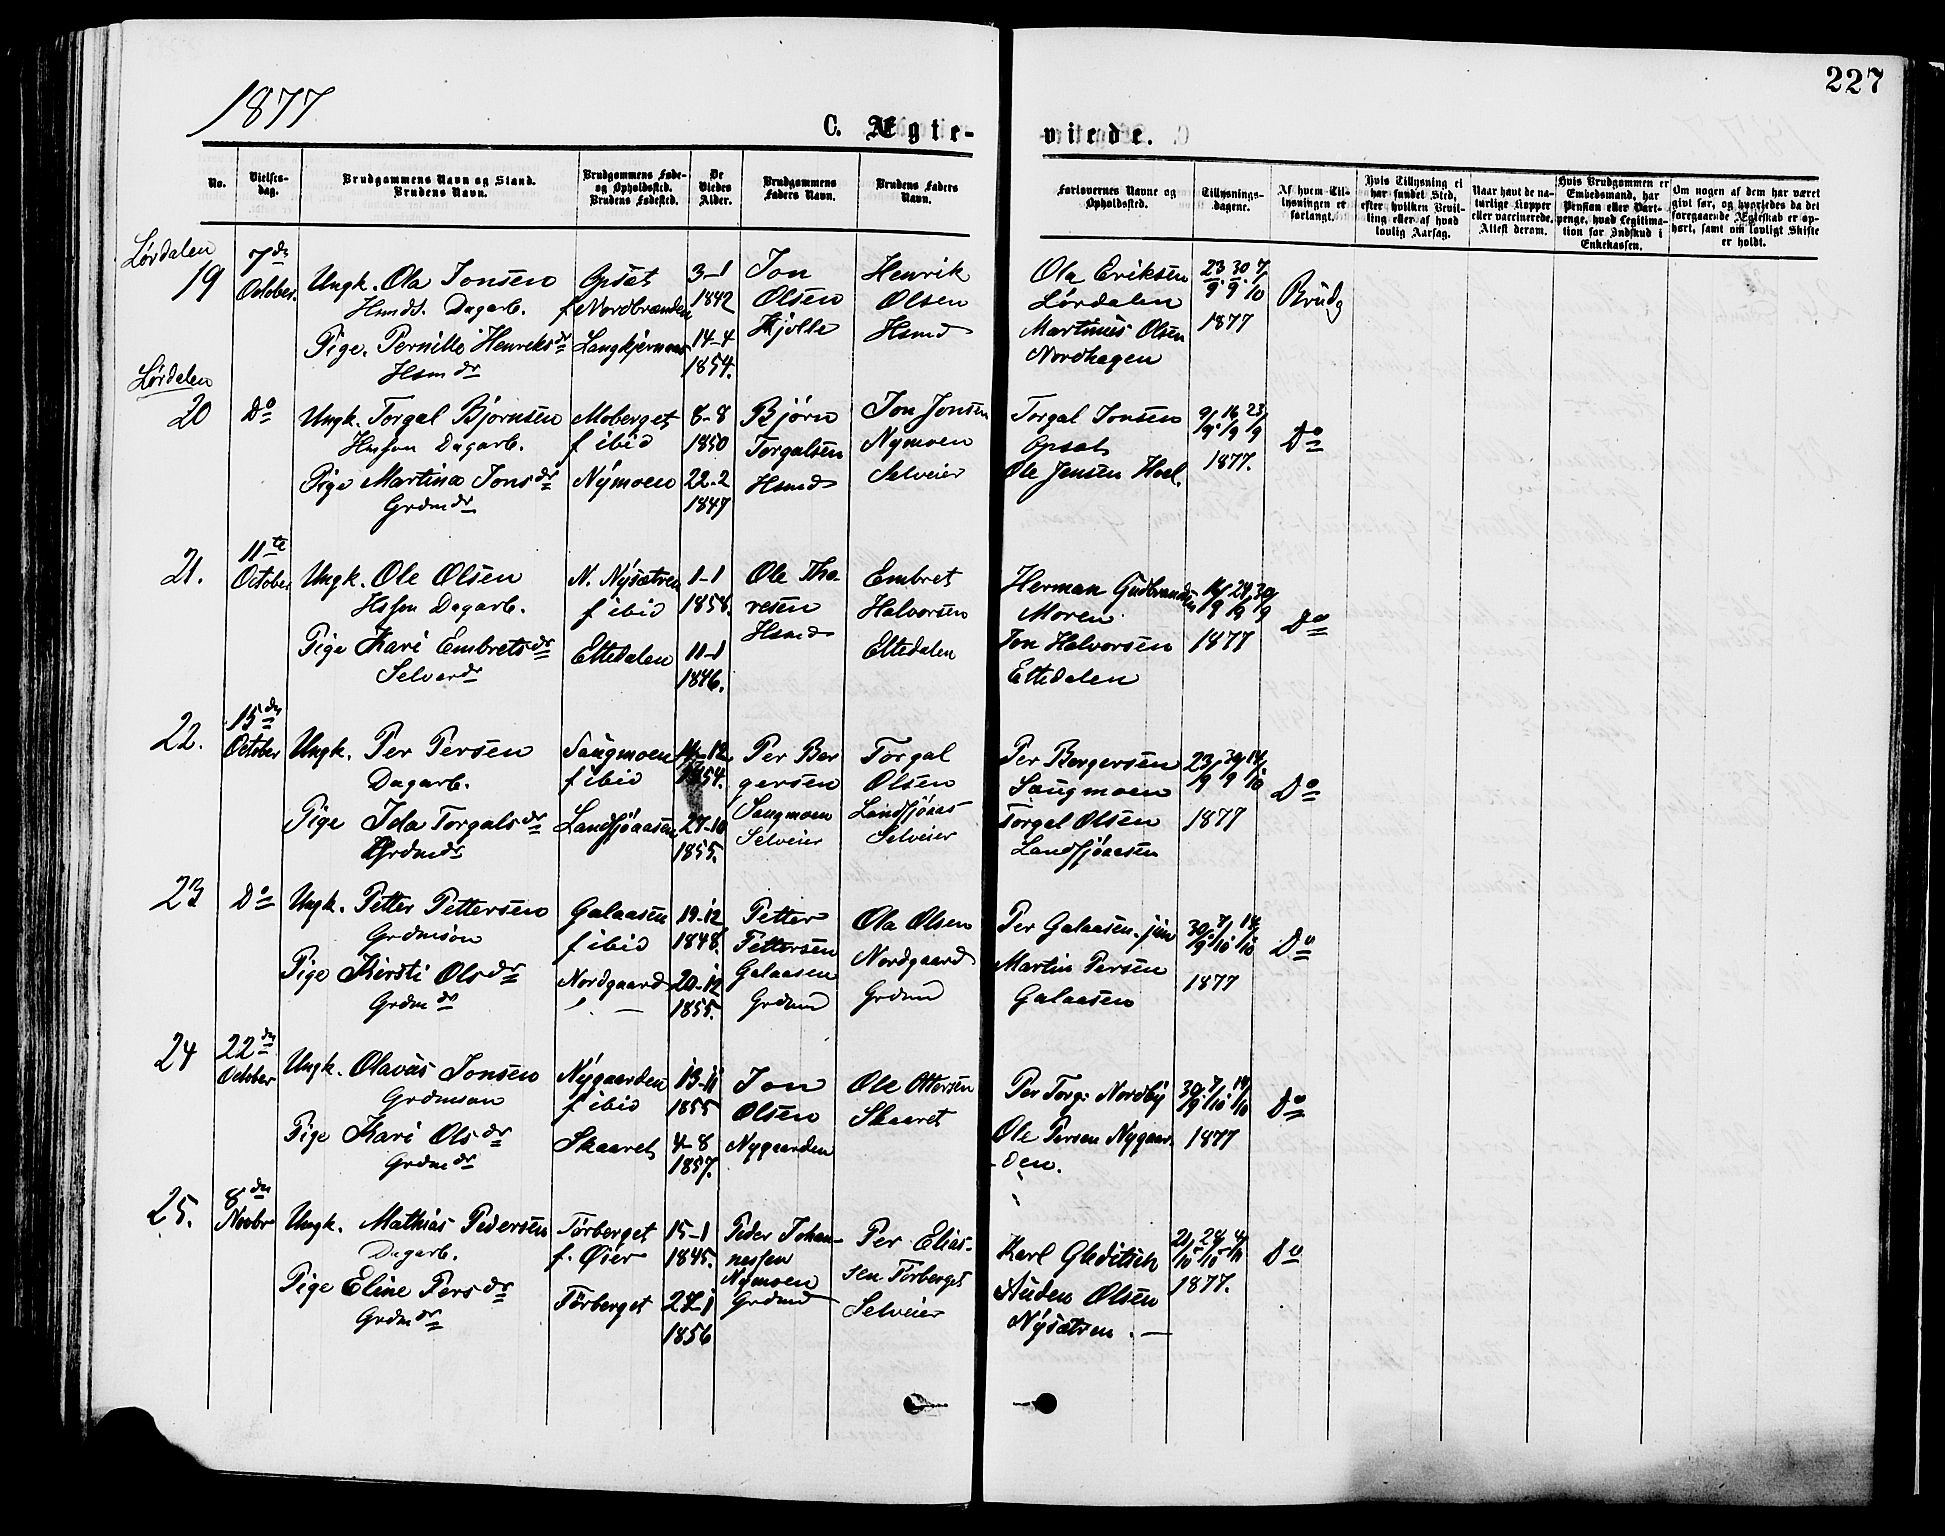 227
1877
C. Ægte-
viede.
No.
Vielses-
dag.
Brudgommens Navn og Stand.
Brudens Navn.
Brudgommens Føde-
og Opholdssted.
Brudens Fødested.
De
Viedes
Alder.
Brudgommens
Faders Navn.
Brudens Faders
Navn.
Forlovernes Navne og
Opholdssted.
Tillysnings-
dagene.
Af hvem Til-
lysningen er
forlangt.
Hvis Tillysning ei
har fundet Sted,
efter hvilken Bevil-
ling eller af hvad
lovlig Aarsag.
Naar havt de na-
turlige Kopper
eller vaccinerede.
Attest derom.
Hvis Brudgommen er
Embedsmand, har
Pension eller Vart-
penge, hvad Legitima-
tion for Indskud i
Enkekassen.
Om nogen af dem har været
gift før, og hvorledes da det
foregaaende Ægteskab er op-
hørt, samt om lovligt Skifte
er holdt.
Lørdalen
19
7de
October.
Ungk. Ola Jonsen
Hmdt. Dagarb.
Pige. Pernille Henriksdr
Hsmdr
Opsat
f Nordbranden
3-1
1842
14-4
1854.
Jon
Olsen
Kjølle
Henrik
Olsen
Hsmd
Ola Eriksen
Lørdalen
Martinus Olsen
Nordhagen
23/9 30/9 7/10
1877
Brudg
Lørdalen
20
Do
Ungk. Torgal Bjørnsen
Dagarb.
Pige Martina Jonsdr
Grdmdr
Moberget
f ibid
Nymoen
8-8
1850
22-2
1847
Bjørn
Torgalsen
Hsmd
Jon Jonsen
Nymoen
Selveier
Torgal Jonsen
Opsat
Ole Jensen Hoel.
9/9 16/9 23/9
1877.
Do
21.
11te
October
Ungk. Ole Olsen
Dagarb.
Pige Kari Embretsdr
Selverdr
N. Nysætren
f ibid
Eltedalen
1-1
1858.
11-1
1846.
Ole Tho
resen
Hsmd
Embret
Halvorsen
Eltedalen
Herman Gudbrandsen
Moren
Jon Halvorsen
Eltedalen
16/9 23/9 30/9
1877
Do
22.
15de
October
Ungk. Per Persen
Dagarb.
Pige Ida Torgalsdr
Grdmdr
Saugmoen
f ibid
Landsjøaasen
14-12
1854.
27-10
1855.
Per Ber
gersen
Saugmoen
Selveier
Torgal
Olsen
Landsjøaas
Selveier
Per Bergersen
Saugmoen
Torgel Olsen
Landsjøaasen
23/9 30/9 14/10
1877
Do
23
Do
Ungk. Petter Pettersen
Grdmsøn
Pige Kirsti Olsdr
Grdmdr
Galaasen
f ibid
Nordgaard
19-12
1848.
20-12
1855.
Petter
Pettersen
Galaasen
Grdmd
Ola Olsen
Nordgaard
Grdmd
Per Galaasen jun
Martin Persen
Galaasen
30/9 7/10 14/10
1877
Do
24
22de
October
Ungk. Olavus Jonsen
Grdmsøn
Pige Kari Olsdr
Grdmdr
Nygaarden
f ibid
Skaaret
13-11
1855
4-8
1857.
Jon
Olsen
Nygaarden
Ole Ottersen
Skaaret
Per Torg: Nordby
Ole Persen Nygaar
-den.
30/9 7/10 14/10
1877
Do
25.
8de
Novbr
Ungk. Mathias Pedersen
Dagarb.
Pige Eline Persdr
Grdmdr
Tørberget
f. Øier
Tørberget
15-1
1845.
1856
Peder Johan-
nessen
Nymoen
Grdmd
Per Elias-
sen Tørberget
Selveier
Karl Gleditsch
Auden Olsen
Nysætren.
21/10 28/10 4/11
1877.
Do